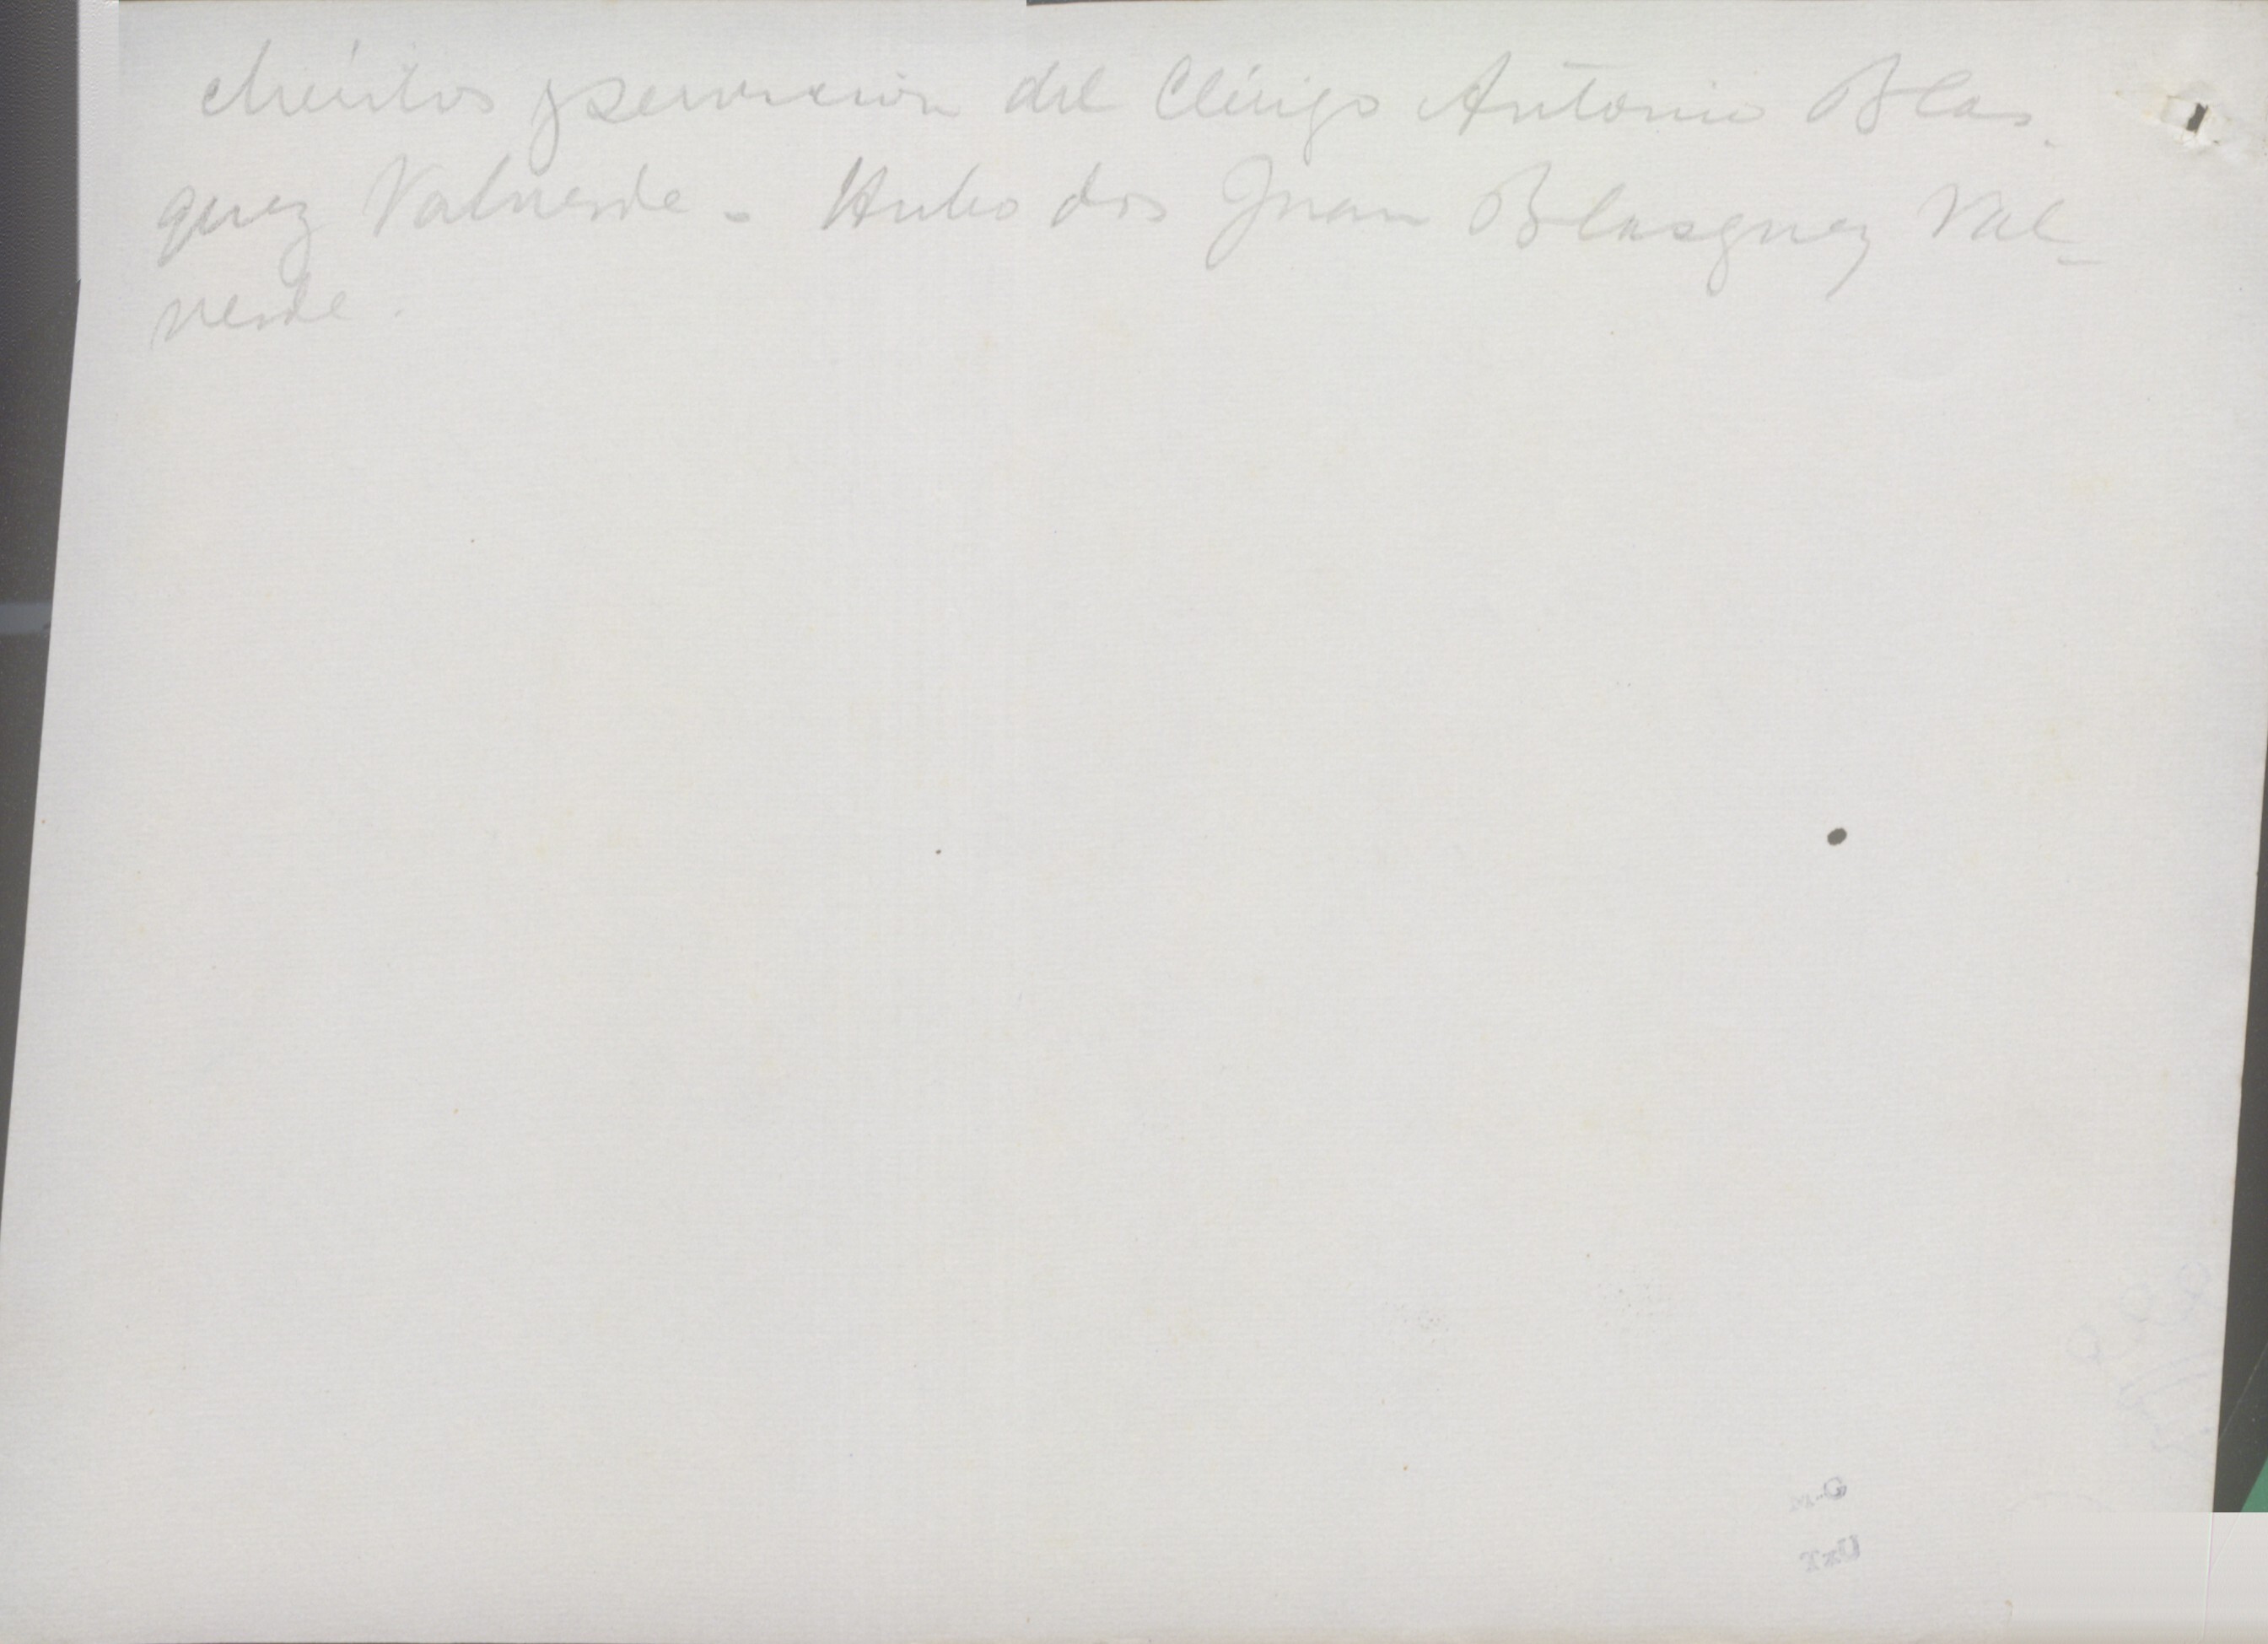 Méritos y servicios del Clérigo Antonio Blas-
quez Valverde - Hubo dos Juan Blasquez Val-
verde.